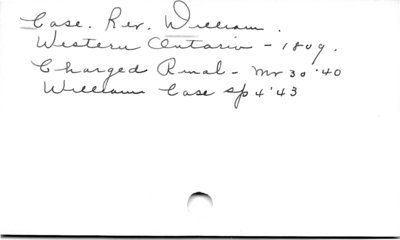 Case. Rev. William.
Western Ontario - 1809.
Charged - Mr 30 '40
William Case Sp 4 '43